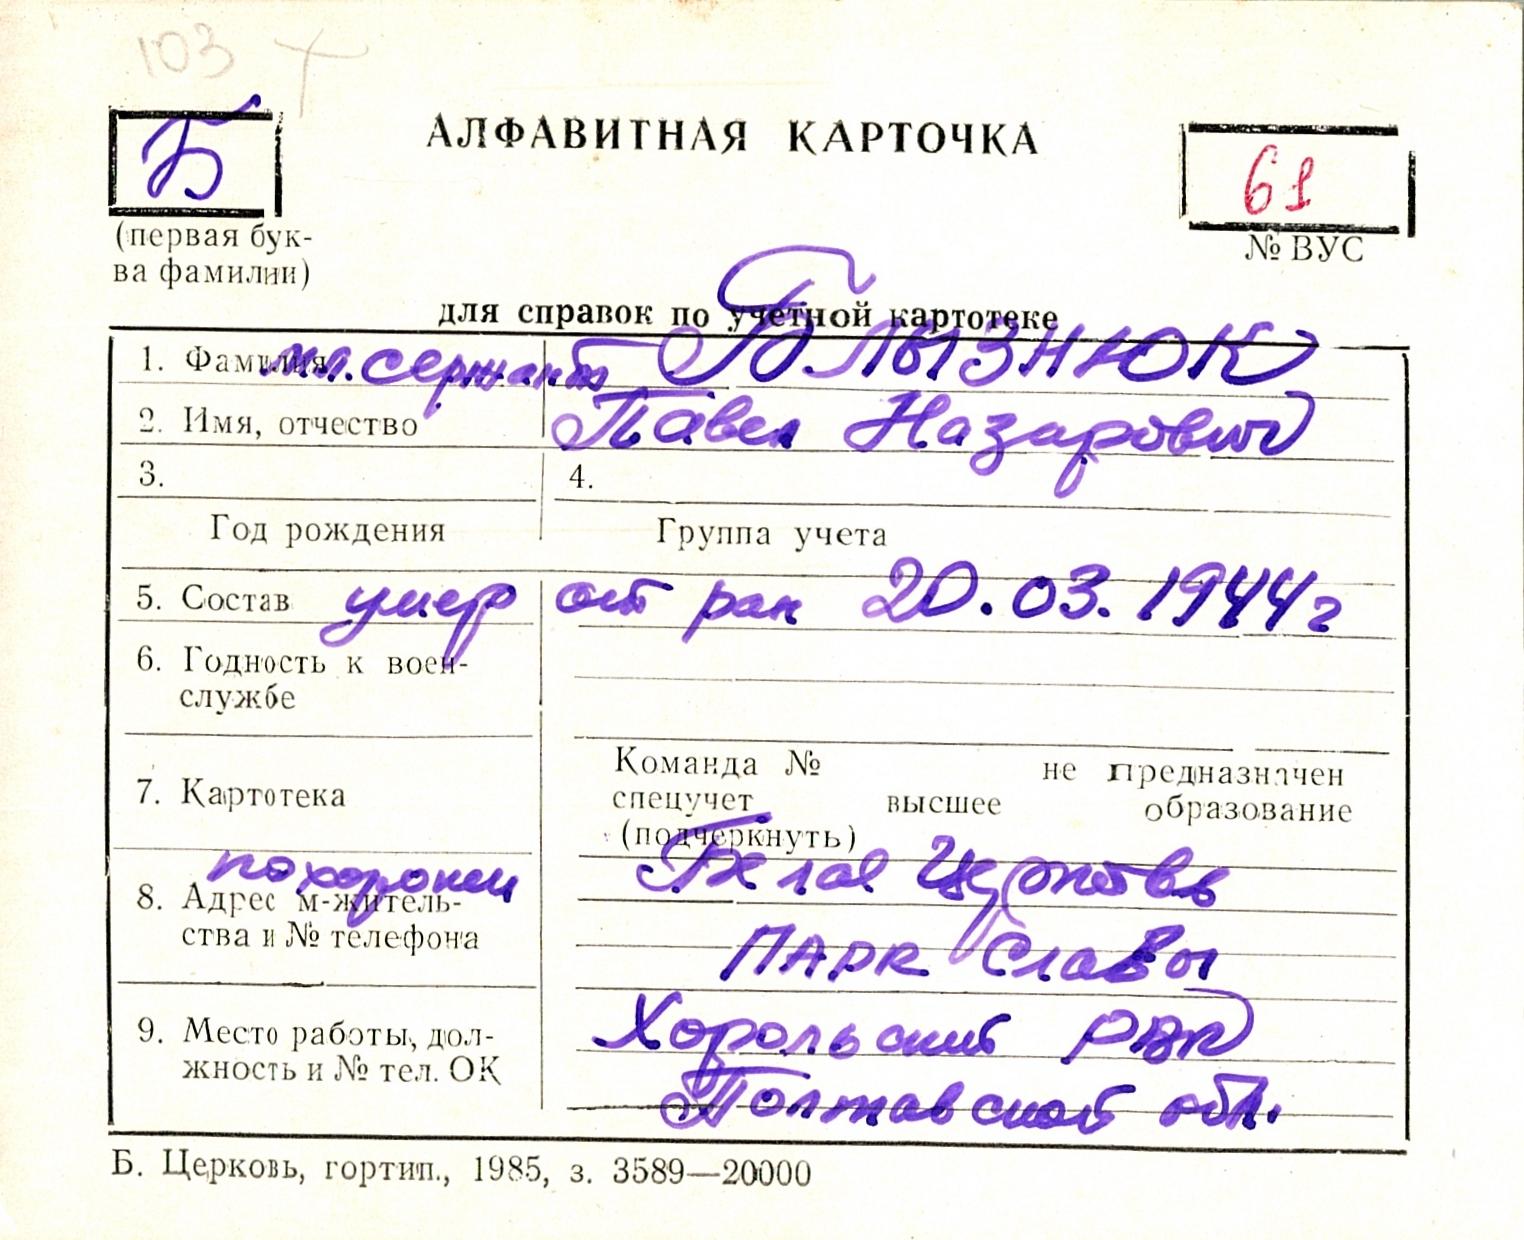 103
Б
АЛФАВИТНАЯ КАРТОЧКА
61
(первая бук-
ва фамилии)
№ ВУС
для справок по учетной картотеке
1. Фамилия мл. сержант БЛЫЗНЮК
2. Имя, отчество Павел Назарович
3. 4.
Год рождения Группа учета
5. Состав умер от ран 20.03.1944г
6. Годность к воен-
службе
Команда № не предназначен
7. Картотека спецучет высшее образование
(подчеркнуть)
похоронен Белая Церковь
8. Адрес м-житель-
ства и № телефона ПАРК Славы
9. Место работы, дол- Хорольский РВК
жность и № тел. ОК Полтавской обл.
Б. Церковь, гортип., 1985, з. 3589—20000